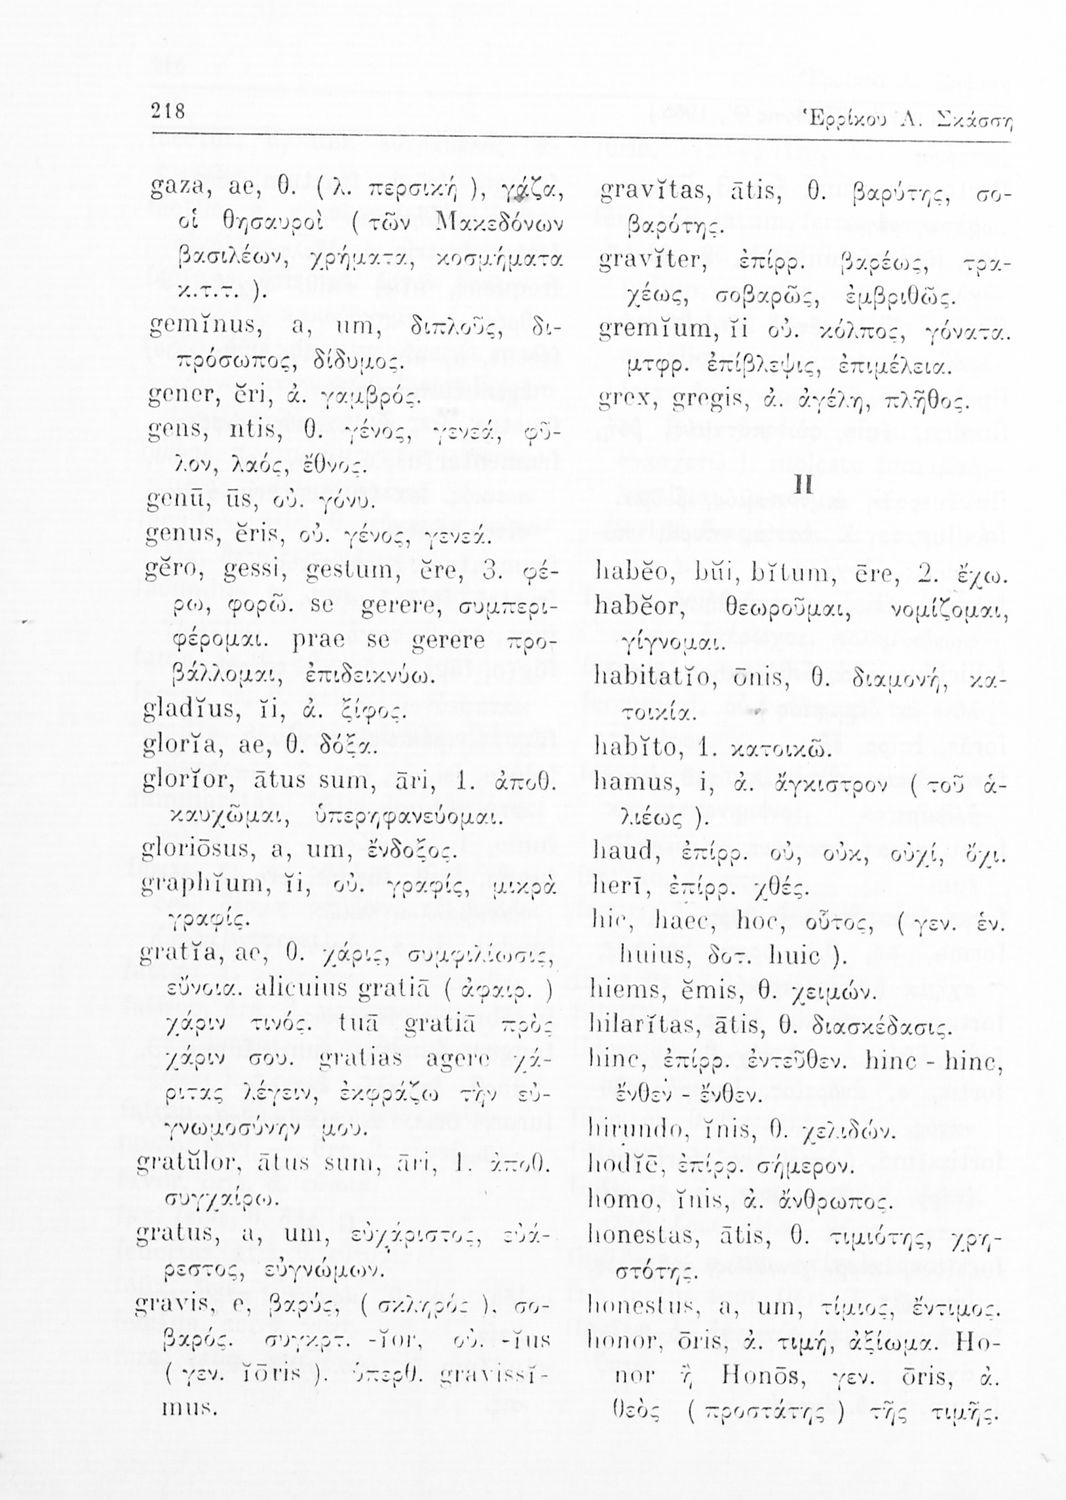 218
Ἑρρίκου Ἀ. Σκάσση
gaza, ae, θ. ( λ. περσική ), γάζα,
οἱ θησαυροὶ ( τῶν Μακεδόνων
βασιλέων, χρήματα, κοσμήματα
κ.τ.τ. ).
gemĭnus, a, um, διπλοῦς, δι-
πρόσωπος, δίδυμος.
gener, ĕri, ἀ. γαμβρός.
gens, ntis, θ. γένος, γενεά, φῦ-
λον, λαός, ἔθνος.
genū, ūs, οὐ. γόνυ.
genus, ĕris, οὐ. γένος, γενεά.
gĕro, gessi, gestum, ĕre, 3. φέ-
ρω, φορῶ. se gerere, συμπερι-
φέρομαι. prae se gerere προ-
βάλλομαι, ἐπιδεικνύω.
gladĭus, ĭi, ἀ. ξίφος.
glorĭa, ae, θ. δόξα.
glorĭor, ātus sum, āri, 1. ἀποθ.
καυχῶμαι, ὑπερηφανεύομαι.
gloriōsus, a, um, ἔνδοξος.
graphĭum, ĭi, οὐ. γραφίς, μικρὰ
γραφίς.
gratĭa, ae, θ. χάρις, συμφιλίωσις,
εὔνοια. alicuius gratiā ( ἀφαιρ. )
χάριν τινός. tuā gratiā πρὸς
χάριν σου. gratias agere χά-
ριτας λέγειν, ἐκφράζω τὴν εὐ-
γνωμοσύνην μου.
gratŭlor, ātus sum, āri, 1. ἀποθ.
συγχαίρω.
gratus, a, um, εὐχάριστος, εὐά-
ρεστος, εὐγνώμων.
gravis, e, βαρύς, ( σκληρός ), σο-
βαρός. συγκρτ. -ĭor, οὐ. -ĭus
( γεν. ĭōris ). ὑπερθ. gravissĭ-
mus.
gravĭtas, ātis, θ. βαρύτης, σο-
βαρότης.
gravĭter, ἐπίρρ. βαρέως, τρα-
χέως, σοβαρῶς, ἐμβριθῶς.
gremĭum, ĭi οὐ. κόλπος, γόνατα.
μτφρ. ἐπίβλεψις, ἐπιμέλεια.
grex, gregis, ἀ. ἀγέλη, πλῆθος.
H
habĕo, bŭi, bĭtum, ēre, 2. ἔχω.
habĕor, θεωροῦμαι, νομίζομαι,
γίγνομαι.
habitatĭo, ōnis, θ. διαμονή, κα-
τοικία.
habĭto, 1. κατοικῶ.
hamus, i, ἀ. ἄγκιστρον ( τοῦ ἁ-
λιέως ).
haud, ἐπίρρ. οὐ, οὐκ, οὐχί, ὄχι.
herī, ἐπίρρ. χθές.
hic, haec, hoc, οὗτος, ( γεν. ἑν.
huius, δοτ. huic ).
hiems, ĕmis, θ. χειμών.
hilarĭtas, ātis, θ. διασκέδασις.
hinc, ἐπίρρ. ἐντεῦθεν. hinc - hinc,
ἔνθεν - ἔνθεν.
hirundo, ĭnis, θ. χελιδών.
hodĭē, ἐπίρρ. σήμερον.
homo, ĭnis, ἀ. ἄνθρωπος.
honestas, ātis, θ. τιμιότης, χρη-
στότης.
honestus, a, um, τίμιος, ἔντιμος.
honor, ōris, ἀ. τιμή, ἀξίωμα. Ho-
nor ἢ Honōs, γεν. ōris, ἀ.
θεὸς ( προστάτης ) τῆς τιμῆς.